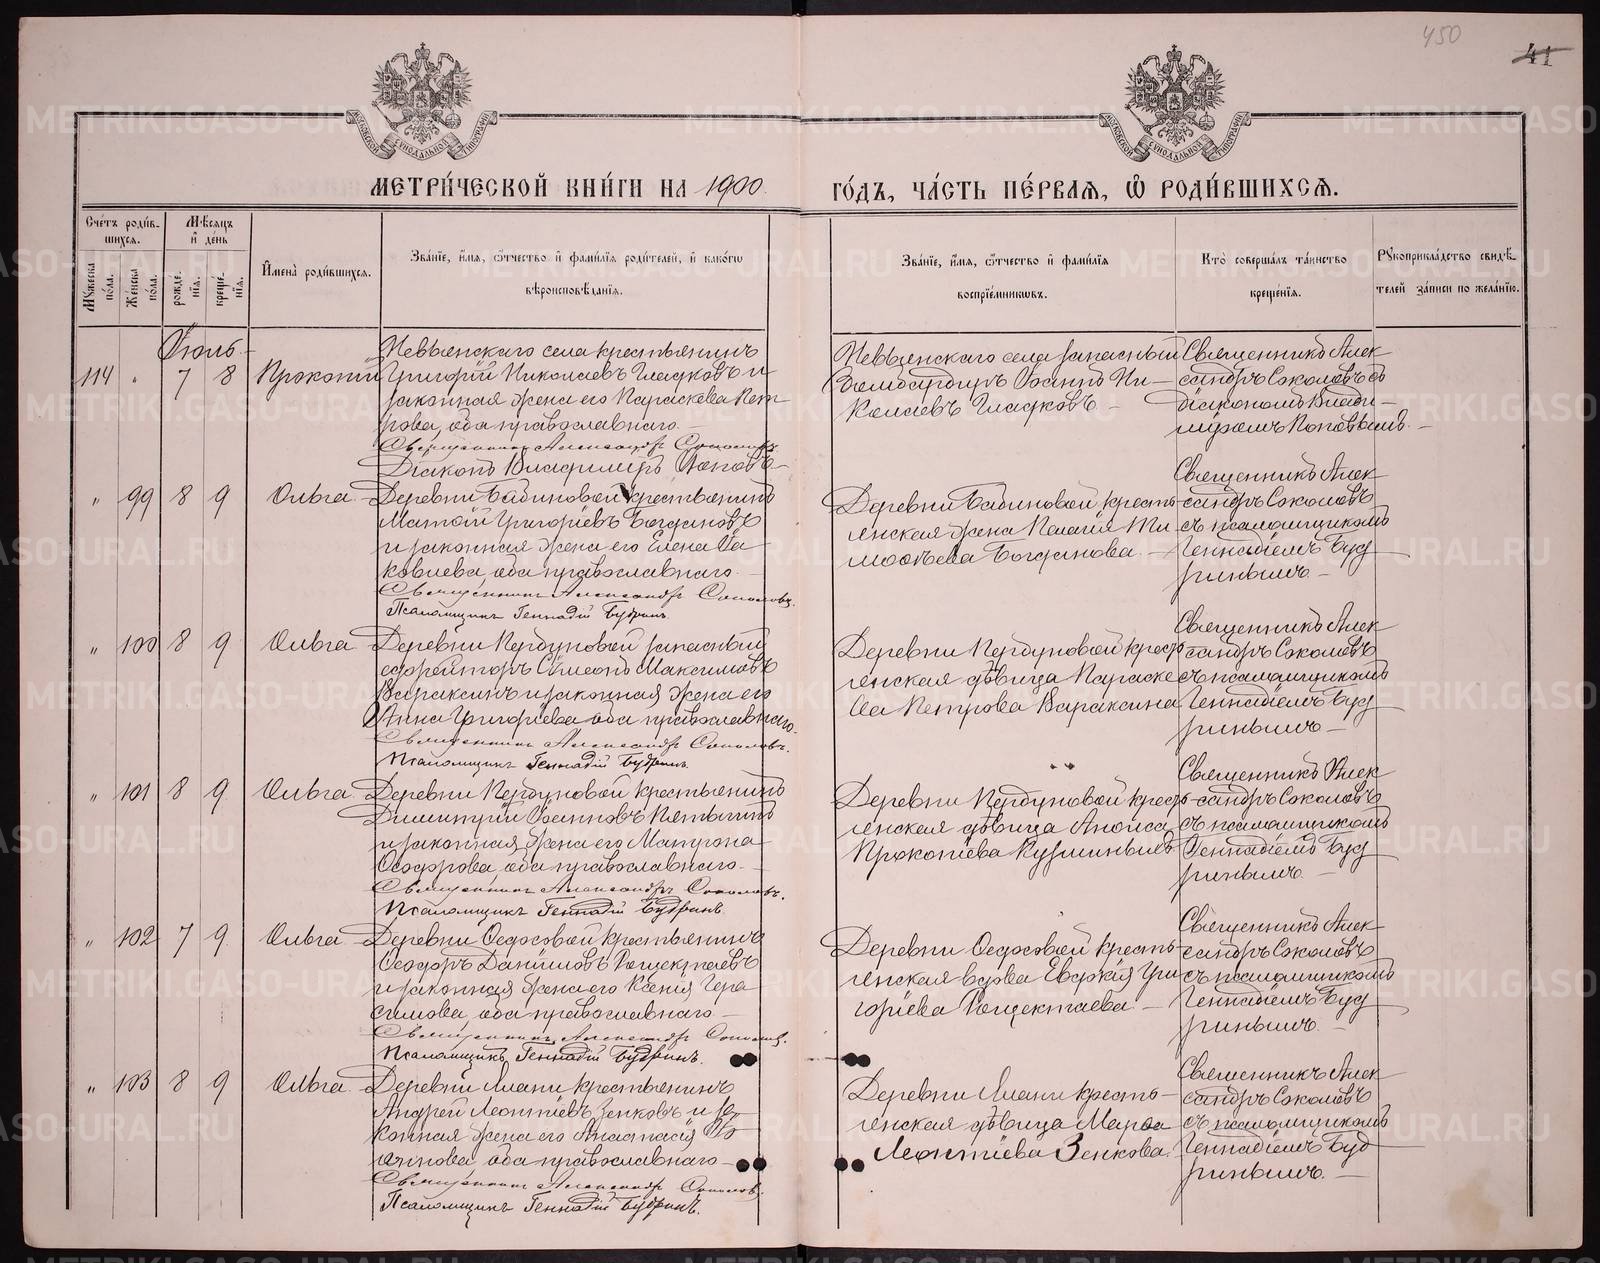 450
41
МЕТРИ́ЧЕСКОЙ КНИ́ГИ НА 1900 ГО́ДЪ, ЧА́СТЬ ПЕ́РВАѦ, Ѡ҆ РОДИ́ВШИХСѦ.
Сче́тъ роди́в-
шихсѧ.
Мѣ́сѧцъ
и҆ де́нь
Мꙋ́жеска
по́ла.
Же́нска
по́ла.
рожде́-
нїѧ.
креще́-
нїѧ.
И҆мена̀ роди́вшихсѧ.
Зва́нїе, и҆́мѧ, ѻ҆́тчество и҆ фами́лїѧ роди́телей, и҆ како́гѡ
вѣроисповѣ́данїѧ.
Зва́нїе, и҆́мѧ, ѻ҆́тчество и҆ фами́лїѧ
воспрїе́мниковъ.
Кто̀ соверша́лъ та́инство
креще́нїѧ.
Рꙋкоприкла́дство свидѣ́-
телей за́писи по жела́нїю.
Іюль
114 " 7 8 Прокопій
Невьянскаго села крестьянинъ
Григорій Николаевъ Гладковъ и
законная жена его Параскева Пет
рова, оба православнаго.
Священникъ Александр Соколовъ
Діаконъ Владимиръ Поповъ
Невьянскаго села запасный
Бомбардиръ Іоаннъ Ни-
колаевъ Гладковъ.
Священникъ Алек
сандръ Соколовъ съ
діакономъ Влади-
миромъ Поповымъ.
" 99 8 9 Ольга
Деревни Бабиновой крестьянинъ
Матѳій Григоріевъ Богдановъ
и законная жена его Елена Іа
ковлева, оба православнаго
Священник Александр Соколовъ.
Псаломщикъ Геннадій Будринъ.
Деревни Бабиновой кресть-
янская жена Пелагія Ти
моѳѣева Богданова.
Священникъ Алек
сандръ Соколовъ
съ псаломщикомъ
Геннадіемъ Буд
ринымъ.
" 100 8 9 Ольга
Деревни Пердуновой запасный
ефрейторъ Сѵмеонъ Максимовъ
Вараксинъ и законная жена его
Анна Григоріева оба православнаго.
Священник Александр Соколовъ.
Псаломщикъ Геннадій Будринъ.
Деревни Пердуновой кресть
янская дѣвица Параске
ва Петрова Вараксина
Священникъ Алек
сандръ Соколовъ
съ псаломщикомъ
Геннадіемъ Буд
ринымъ.
" 101 8 9 Ольга
Деревни Пердуновой крестьянинъ
Димитрій Іоанновъ Пятыгинъ
и законная жена его Матрона
Ѳеодорова, оба православнаго.
Священник Александръ Соколовъ.
Псаломщикъ Геннадій Будринъ.
Деревни Пердуновой кресть-
янская дѣвица Анѳиса
Прокопіева Кузминыхъ
Священникъ Алек
сандръ Соколовъ
съ псаломщикомъ
Геннадіемъ Буд
ринымъ.
" 102 7 9 Ольга
Деревни Ѳедосовой крестьянинъ
Ѳеодоръ Даніиловъ Рощектаевъ
и законная жена его Ксенія Гера
симова, оба православнаго
Священникъ Александр Соколовъ.
Псаломщикъ Геннадій Будринъ.
Деревни Ѳедосовой кресть-
янская вдова Евдокія Гри
горіева Рощектаева.
Священникъ Алек
сандръ Соколовъ
съ псаломщикомъ
Геннадіемъ Буд
ринымъ.
" 103 8 9 Ольга
Деревни Ялани крестьянинъ
Андрей Леонтіевъ Зенковъ и за-
конная жена его Анастасія Іо
аннова, оба православнаго
Священник Александр Соколовъ.
Псаломщикъ Геннадій Будринъ.
Деревни Ялани кресть-
янская дѣвица Марѳа
Леонтіева Зенкова.
Священникъ Алек
сандръ Соколовъ
съ псаломщикомъ
Геннадіемъ Буд
ринымъ.
METRIKI.GASO-URAL.RU